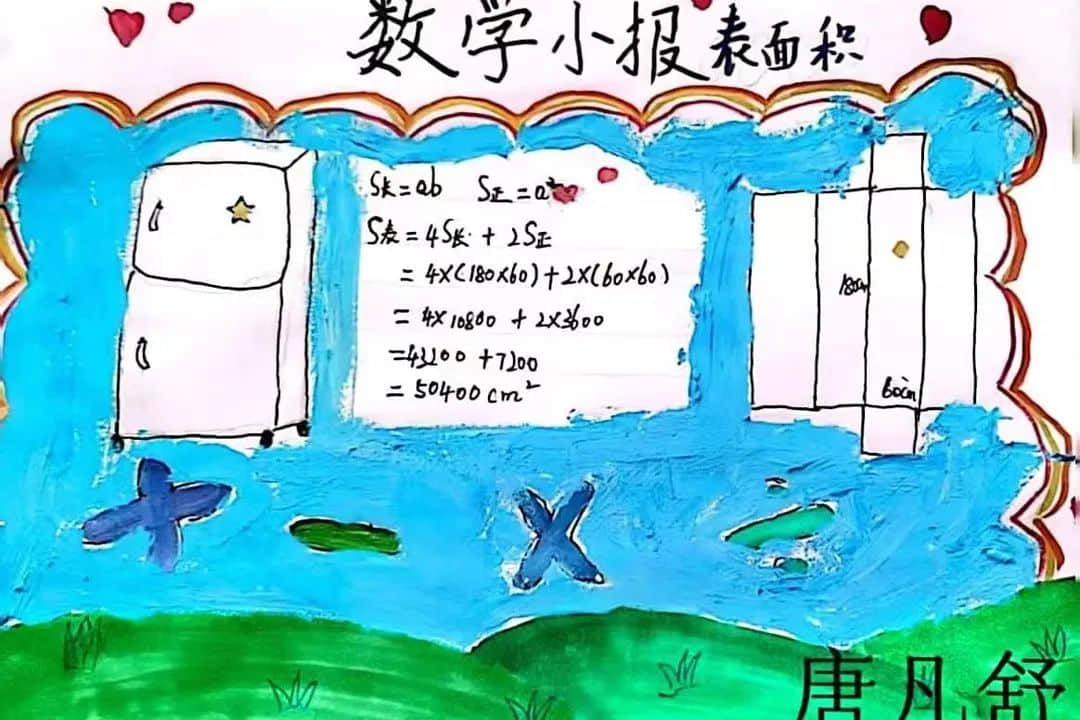 数学小报表面积
S长=ab S正=a²
S表=4S长+2S正
=4×(180×60)+2×(60×60)
=4×10800+2×3600
=43200+7200
=50400cm²
180cm
60cm
+ - × ÷
唐凡舒